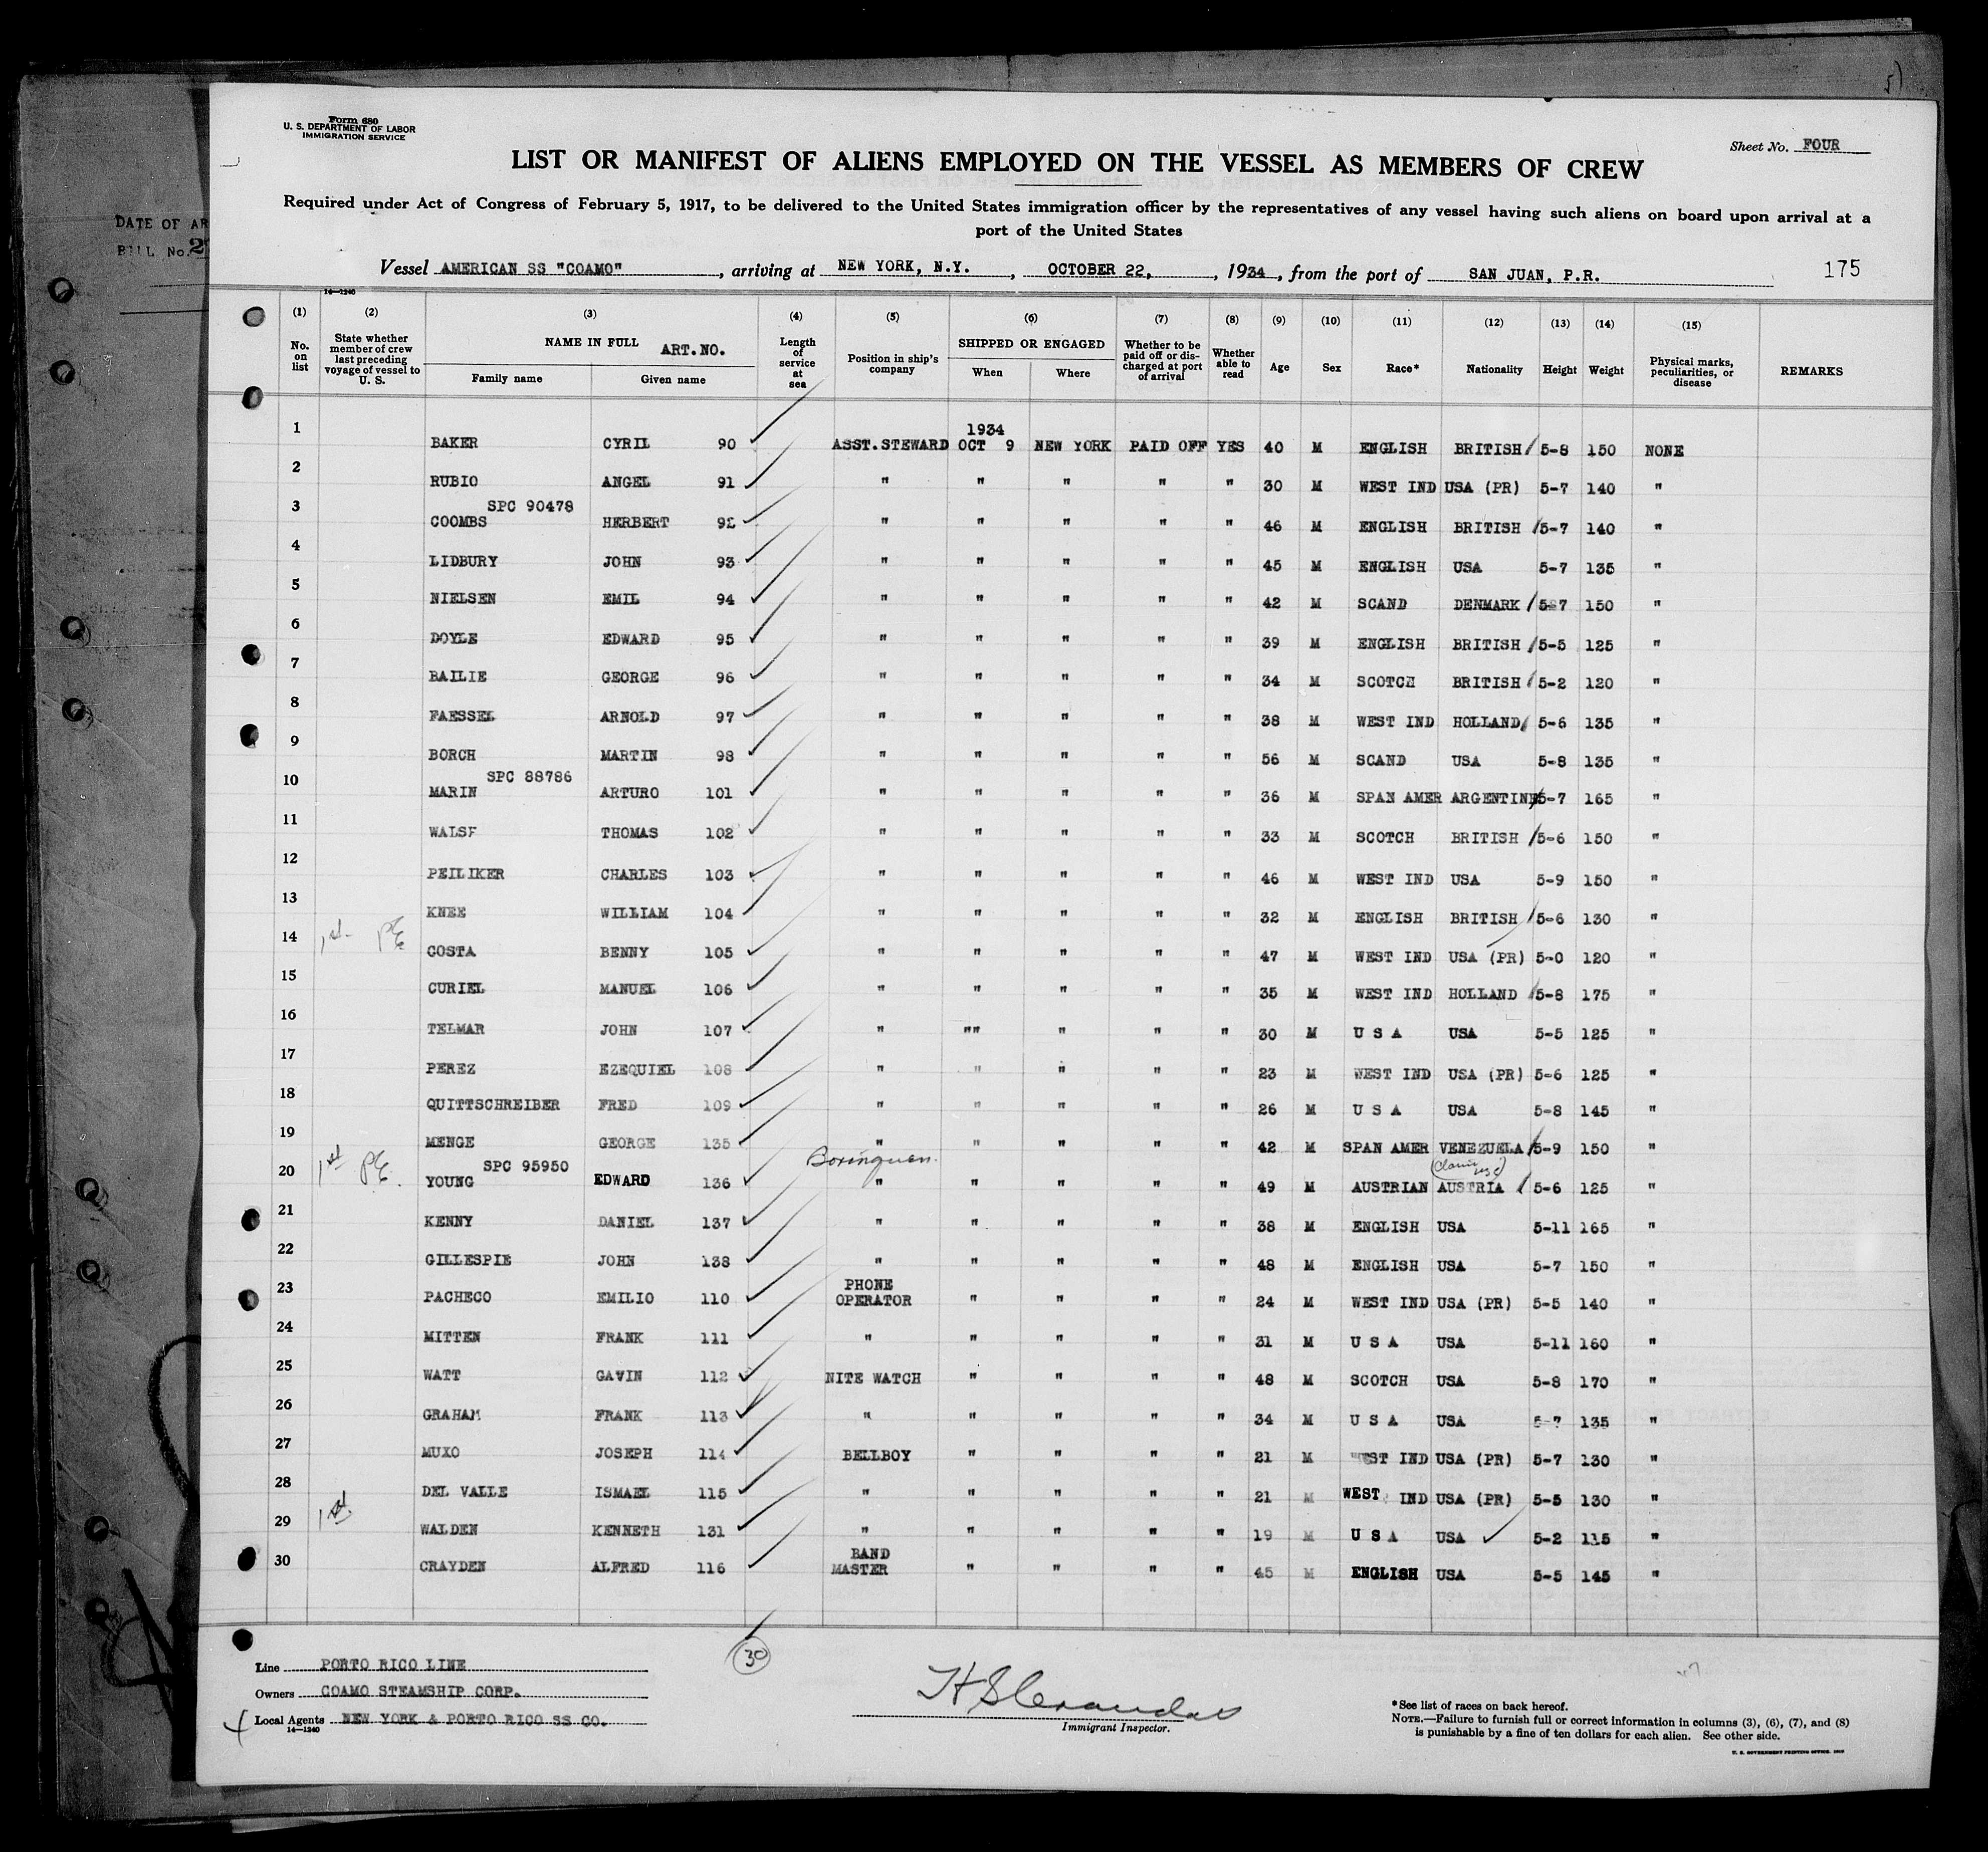 5)
DATE OF AR
BILL No. 2
Form 680
U. S. DEPARTMENT OF LABOR
IMMIGRATION SERVICE
Sheet No. FOUR
LIST OR MANIFEST OF ALIENS EMPLOYED ON THE VESSEL AS MEMBERS OF CREW
Required under Act of Congress of February 5, 1917, to be delivered to the United States immigration officer by the representatives of any vessel having such aliens on board upon arrival at a
port of the United States
Vessel AMERICAN SS "COAMO", arriving at NEW YORK, N.Y., OCTOBER 22, 1934, from the port of SAN JUAN, P.R. 175
14—1240
(1) (2) (3) (4) (5) (6) (7) (8) (9) (10) (11) (12) (13) (14) (15)
No. on list
State whether member of crew last preceding voyage of vessel to U. S.
NAME IN FULL ART.NO.
Family name Given name
Length of service at sea
Position in ship's company
SHIPPED OR ENGAGED
When Where
Whether to be paid off or discharged at port of arrival
Whether able to read
Age Sex Race* Nationality Height Weight
Physical marks, peculiarities, or disease
REMARKS
1934
1 BAKER CYRIL 90 ASST.STEWARD OCT 9 NEW YORK PAID OFF YES 40 M ENGLISH BRITISH 5-8 150 NONE
2 RUBIO ANGEL 91 " " " " " 30 M WEST IND USA (PR) 5-7 140 "
SPC 90478
3 COOMBS HERBERT 92 " " " " " 46 M ENGLISH BRITISH 5-7 140 "
4 LIDBURY JOHN 93 " " " " " 45 M ENGLISH USA 5-7 135 "
5 NIELSEN EMIL 94 " " " " " 42 M SCAND DENMARK 5-7 150 "
6 DOYLE EDWARD 95 " " " " " 39 M ENGLISH BRITISH 5-5 125 "
7 BAILIE GEORGE 96 " " " " " 34 M SCOTCH BRITISH 5-2 120 "
8 FAESSEL ARNOLD 97 " " " " " 38 M WEST IND HOLLAND 5-6 135 "
9 BORCH MARTIN 98 " " " " " 56 M SCAND USA 5-8 135 "
SPC 88786
10 MARIN ARTURO 101 " " " " " 36 M SPAN AMER ARGENTINE 5-7 165 "
11 WALSF THOMAS 102 " " " " " 33 M SCOTCH BRITISH 5-6 150 "
12 PEILIKER CHARLES 103 " " " " " 46 M WEST IND USA 5-9 150 "
13 KNEE WILLIAM 104 " " " " " 32 M ENGLISH BRITISH 5-6 130 "
14 1st COSTA BENNY 105 " " " " " 47 M WEST IND USA (PR) 5-0 120 "
15 CURIEL MANUEL 106 " " " " " 35 M WEST IND HOLLAND 5-8 175 "
16 TELMAR JOHN 107 " "" " " " 30 M U S A USA 5-5 125 "
17 PEREZ EZEQUIEL 108 " " " " " 23 M WEST IND USA (PR) 5-6 125 "
18 QUITTSCHREIBER FRED 109 " " " " " 26 M U S A USA 5-8 145 "
19 MENGE GEORGE 135 " " " " " 42 M SPAN AMER VENEZUELA 5-9 150 "
SPC 95950 Borinquen.
20 1st YOUNG EDWARD 136 " " " " " 49 M AUSTRIAN AUSTRIA 5-6 125 "
21 KENNY DANIEL 137 " " " " " 38 M ENGLISH USA 5-11 165 "
22 GILLESPIE JOHN 138 " " " " " 48 M ENGLISH USA 5-7 150 "
23 PACHECO EMILIO 110 PHONE OPERATOR " " " " 24 M WEST IND USA (PR) 5-5 140 "
24 MITTEN FRANK 111 " " " " " 31 M U S A USA 5-11 160 "
25 WATT GAVIN 112 NITE WATCH " " " " 48 M SCOTCH USA 5-8 170 "
26 GRAHAM FRANK 113 " " " " " 34 M U S A USA 5-7 135 "
27 MUXO JOSEPH 114 BELLBOY " " " " 21 M WEST IND USA (PR) 5-7 130 "
28 DEL VALLE ISMAEL 115 " " " " " 21 M WEST IND USA (PR) 5-5 130 "
29 1st WALDEN KENNETH 131 " " " " " 19 M U S A USA 5-2 115 "
30 CRAYDEN ALFRED 116 BAND MASTER " " " " 45 M ENGLISH USA 5-5 145 "
30
Line PORTO RICO LINE
Owners COAMO STEAMSHIP CORP.
Local Agents NEW YORK & PORTO RICO SS CO.
14—1240
Immigrant Inspector.
*See list of races on back hereof.
NOTE.—Failure to furnish full or correct information in columns (3), (6), (7), and (8)
is punishable by a fine of ten dollars for each alien. See other side.
U. S. GOVERNMENT PRINTING OFFICE